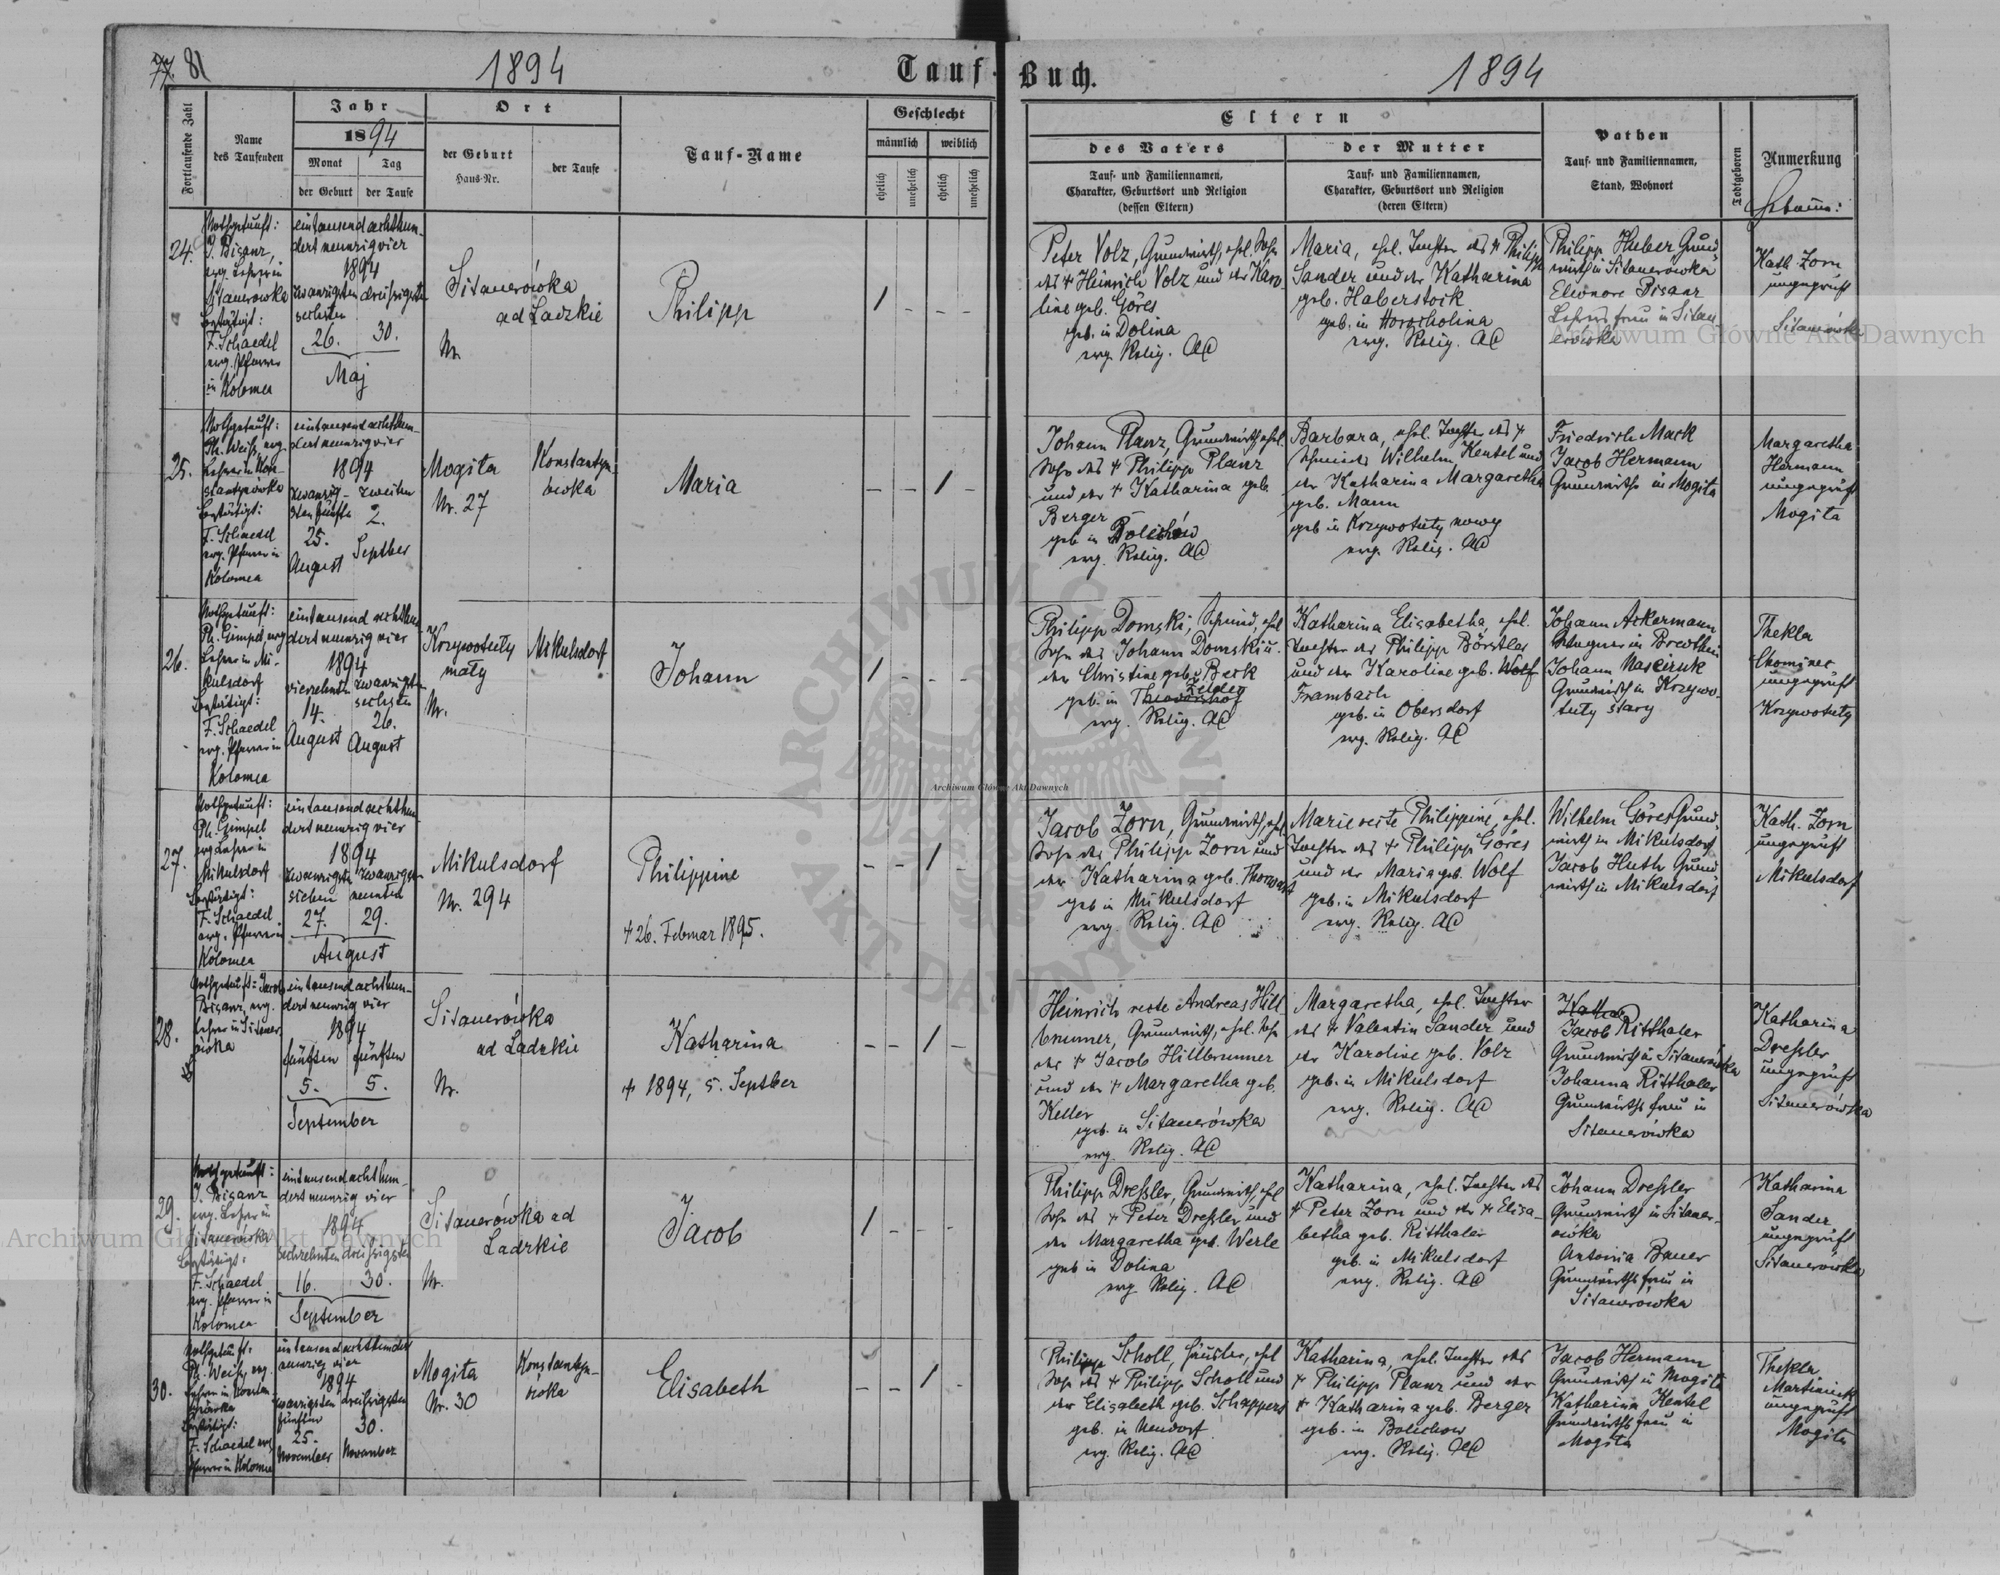 77. 81
1894
Tauf-Buch.
1894
Fortlaufende Zahl
Name
des Taufenden
Jahr
1894
Monat
Tag
der Geburt
der Taufe
Ort
der Geburt
Haus-Nr.
der Taufe
Tauf-Name
Geschlecht
männlich
weiblich
ehelich
unehelich
ehelich
unehelich
Eltern
des Vaters
Tauf- und Familiennamen,
Charakter, Geburtsort und Religion
(dessen Eltern)
der Mutter
Tauf- und Familiennamen,
Charakter, Geburtsort und Religion
(deren Eltern)
Pathen
Tauf- und Familiennamen,
Stand, Wohnort
Todtgeboren
Anmerkung
Hebamme:
24.
Nothgetauft:
J. Bisanz,
evg. Lehrer in
Sitauerówka
bestätigt:
F. Schaedel
evg. Pfarrer
in Kolomea
eintausend achthun-
dert neunzig vier
1894
zwanzigsten dreissigsten
sechsten
26. 30.
Maj
Sitauerówka
ad Ladzkie
Nr.
Philipp
1 - - -
Peter Volz, Grundwirth, ehel. Sohn
des + Heinrich Volz und der Karo-
line geb. Göres
geb. in Dolina
evg. Relig. AC
Maria, ehel. Tochter des + Philipp
Sander und der Katharina
geb. Haberstock
geb. in Horocholina
evg. Relig. AC
Philipp Huber Grund-
wirth in Sitauerówka
Eleonore Bisanz
Lehrersfrau in Sitau-
erówka
Kath. Zorn
ungeprüft
Sitauerówka
25.
Nothgetauft:
Ph. Weiss, evg.
Lehrer in Kon-
stantynówka
bestätigt:
F. Schaedel
evg. Pfarrer in
Kolomea
eintausend achthun-
dert neunzig vier
1894
zwanzig- zweiten
sten fünften
25. 2.
August Septber
Mogiła
Nr. 27
Konstantyn-
ówka
Maria
- - 1 -
Johann Planz, Grundwirth, ehel.
Sohn des + Philipp Planz
und der + Katharina geb.
Berger
geb in Bolechów
evg. Relig. AC
Barbara, ehel. Tochter des +
Schmieds Wilhelm Kentel und
der Katharina Margaretha
geb. Mann
geb in Krzywotuły nowy
evg. Relig. AC
Friedrich Mack
Jacob Hermann
Grundwirthe in Mogiła
Margaretha
Hermann
ungeprüft
Mogiła
26.
Nothgetauft:
Ph. Gimpel evg
Lehrer in Mi-
kulsdorf
bestätigt:
F. Schaedel
evg. Pfarrer in
Kolomea
eintausend achthun-
dert neunzig vier
1894
vierzehnten zwanzigsten
sechsten
14. 26.
August August
Krzywotuły
mały
Nr.
Mikulsdorf
Johann
1 - - -
Philipp Domski, Schmied, ehel
Sohn des Johann Domski u.
der Christine geb. Berk
Felden
geb. in Theodorshof
evg. Relig. AC
Katharina Elisabetha, ehel.
Tochter des Philipp Börstler
und der Karoline geb. Wolf
Frambach
geb. in Obersdorf
evg. Relig. AC
Johann Ackermann
Wagner in Bredtheim
Johann Nasciruk
Grundwirth in Krzywo-
tuły stary
Thekla
ungeprüft
Krzywotuły
27.
Nothgetauft:
Ph. Gimpel
evg Lehrer in
Mikulsdorf
bestätigt:
F. Schaedel
evg. Pfarrer in
Kolomea
eintausend achthun-
dert neunzig vier
1894
zwanzigsten zwanzigsten
sieben neunten
27. 29.
August
Mikulsdorf
Nr. 294
Philippine
+ 26. Februar 1895.
- - 1 -
Jacob Zorn, Grundwirth, ehel
Sohn des Philipp Zorn und
der Katharina geb. Thorwart
geb in Mikulsdorf
evg. Relig. AC
Marie recte Philippine, ehel.
Tochter des + Philipp Göres
und der Maria geb. Wolf
geb. in Mikulsdorf
evg. Relig. AC
Wilhelm Göres Grund-
wirth in Mikulsdorf
Jacob Huth Grund-
wirth in Mikulsdorf
Kath. Zorn
ungeprüft
Mikulsdorf
28.
Nothgetauft: Jacob
Bisanz, evg.
Lehrer in Sitauer-
ówka
eintausend achthun-
dert neunzig vier
1894
fünften fünften
5. 5.
September
Sitauerówka
ad Ladzkie
Nr.
Katharina
+ 1894, 5. Septber
- - 1 -
Heinrich recte Andreas Hill-
brunner, Grundwirth, ehel. Sohn
des + Jacob Hillbrunner
und der + Margaretha geb.
Keller
geb. in Sitauerówka
evg. Relig. AC
Margaretha, ehel. Tochter
des + Valentin Sander und
der Karoline geb. Volz
geb. in Mikulsdorf
evg. Relig. AC
Jacob Ritthaler
Grundwirth in Sitauerówka
Johanna Ritthaler
Grundwirthsfrau in
Sitauerówka
Katharina
Dreßler
ungeprüft
Sitauerówka
29.
Nothgetauft:
J. Bisanz
evg. Lehrer in
Sitauerówka
bestätigt:
F. Schaedel
evg. Pfarrer in
Kolomea
eintausend achthun-
dert neunzig vier
1894
sechzehnten dreissigsten
16. 30.
September
Sitauerówka ad
Ladzkie
Nr.
Jacob
1 - - -
Philipp Dreßler, Grundwirth, ehel
Sohn des + Peter Dreßler und
der Margaretha geb. Werle
geb in Dolina
evg Relig. AC
Katharina, ehel. Tochter des
+ Peter Zorn und der + Elisa-
betha geb. Ritthaler
geb. in Mikulsdorf
evg. Relig. AC
Johann Dreßler
Grundwirth in Sitauer-
ówka
Antonia Bauer
Grundwirthsfrau in
Sitauerówka
Katharina
Sander
ungeprüft
Sitauerówka
30.
Nothgetauft:
Ph. Weiss, evg.
Lehrer in Konstan-
tynówka
bestätigt:
F. Schaedel evg
Pfarrer in Kolomea
eintausend achthundert
neunzig vier
1894
zwanzigsten dreissigsten
fünften
25. 30.
November November
Mogiła
Nr. 30
Konstantyn-
ówka
Elisabeth
- - 1 -
Philipp Scholl, Häusler, ehel
Sohn des + Philipp Scholl und
der Elisabeth geb. Schappert
geb. in Neudorf
evg. Relig. AC
Katharina, ehel. Tochter des
+ Philipp Planz und der
+ Katharina geb. Berger
geb. in Bolechow
evg. Relig. AC
Jacob Hermann
Grundwirth in Mogiła
Katharina Kentel
Grundwirthsfrau in
Mogiła
Thekla
ungeprüft
Mogiła
Archiwum Główne Akt Dawnych
Archiwum Główne Akt Dawnych
Archiwum Główne Akt Dawnych